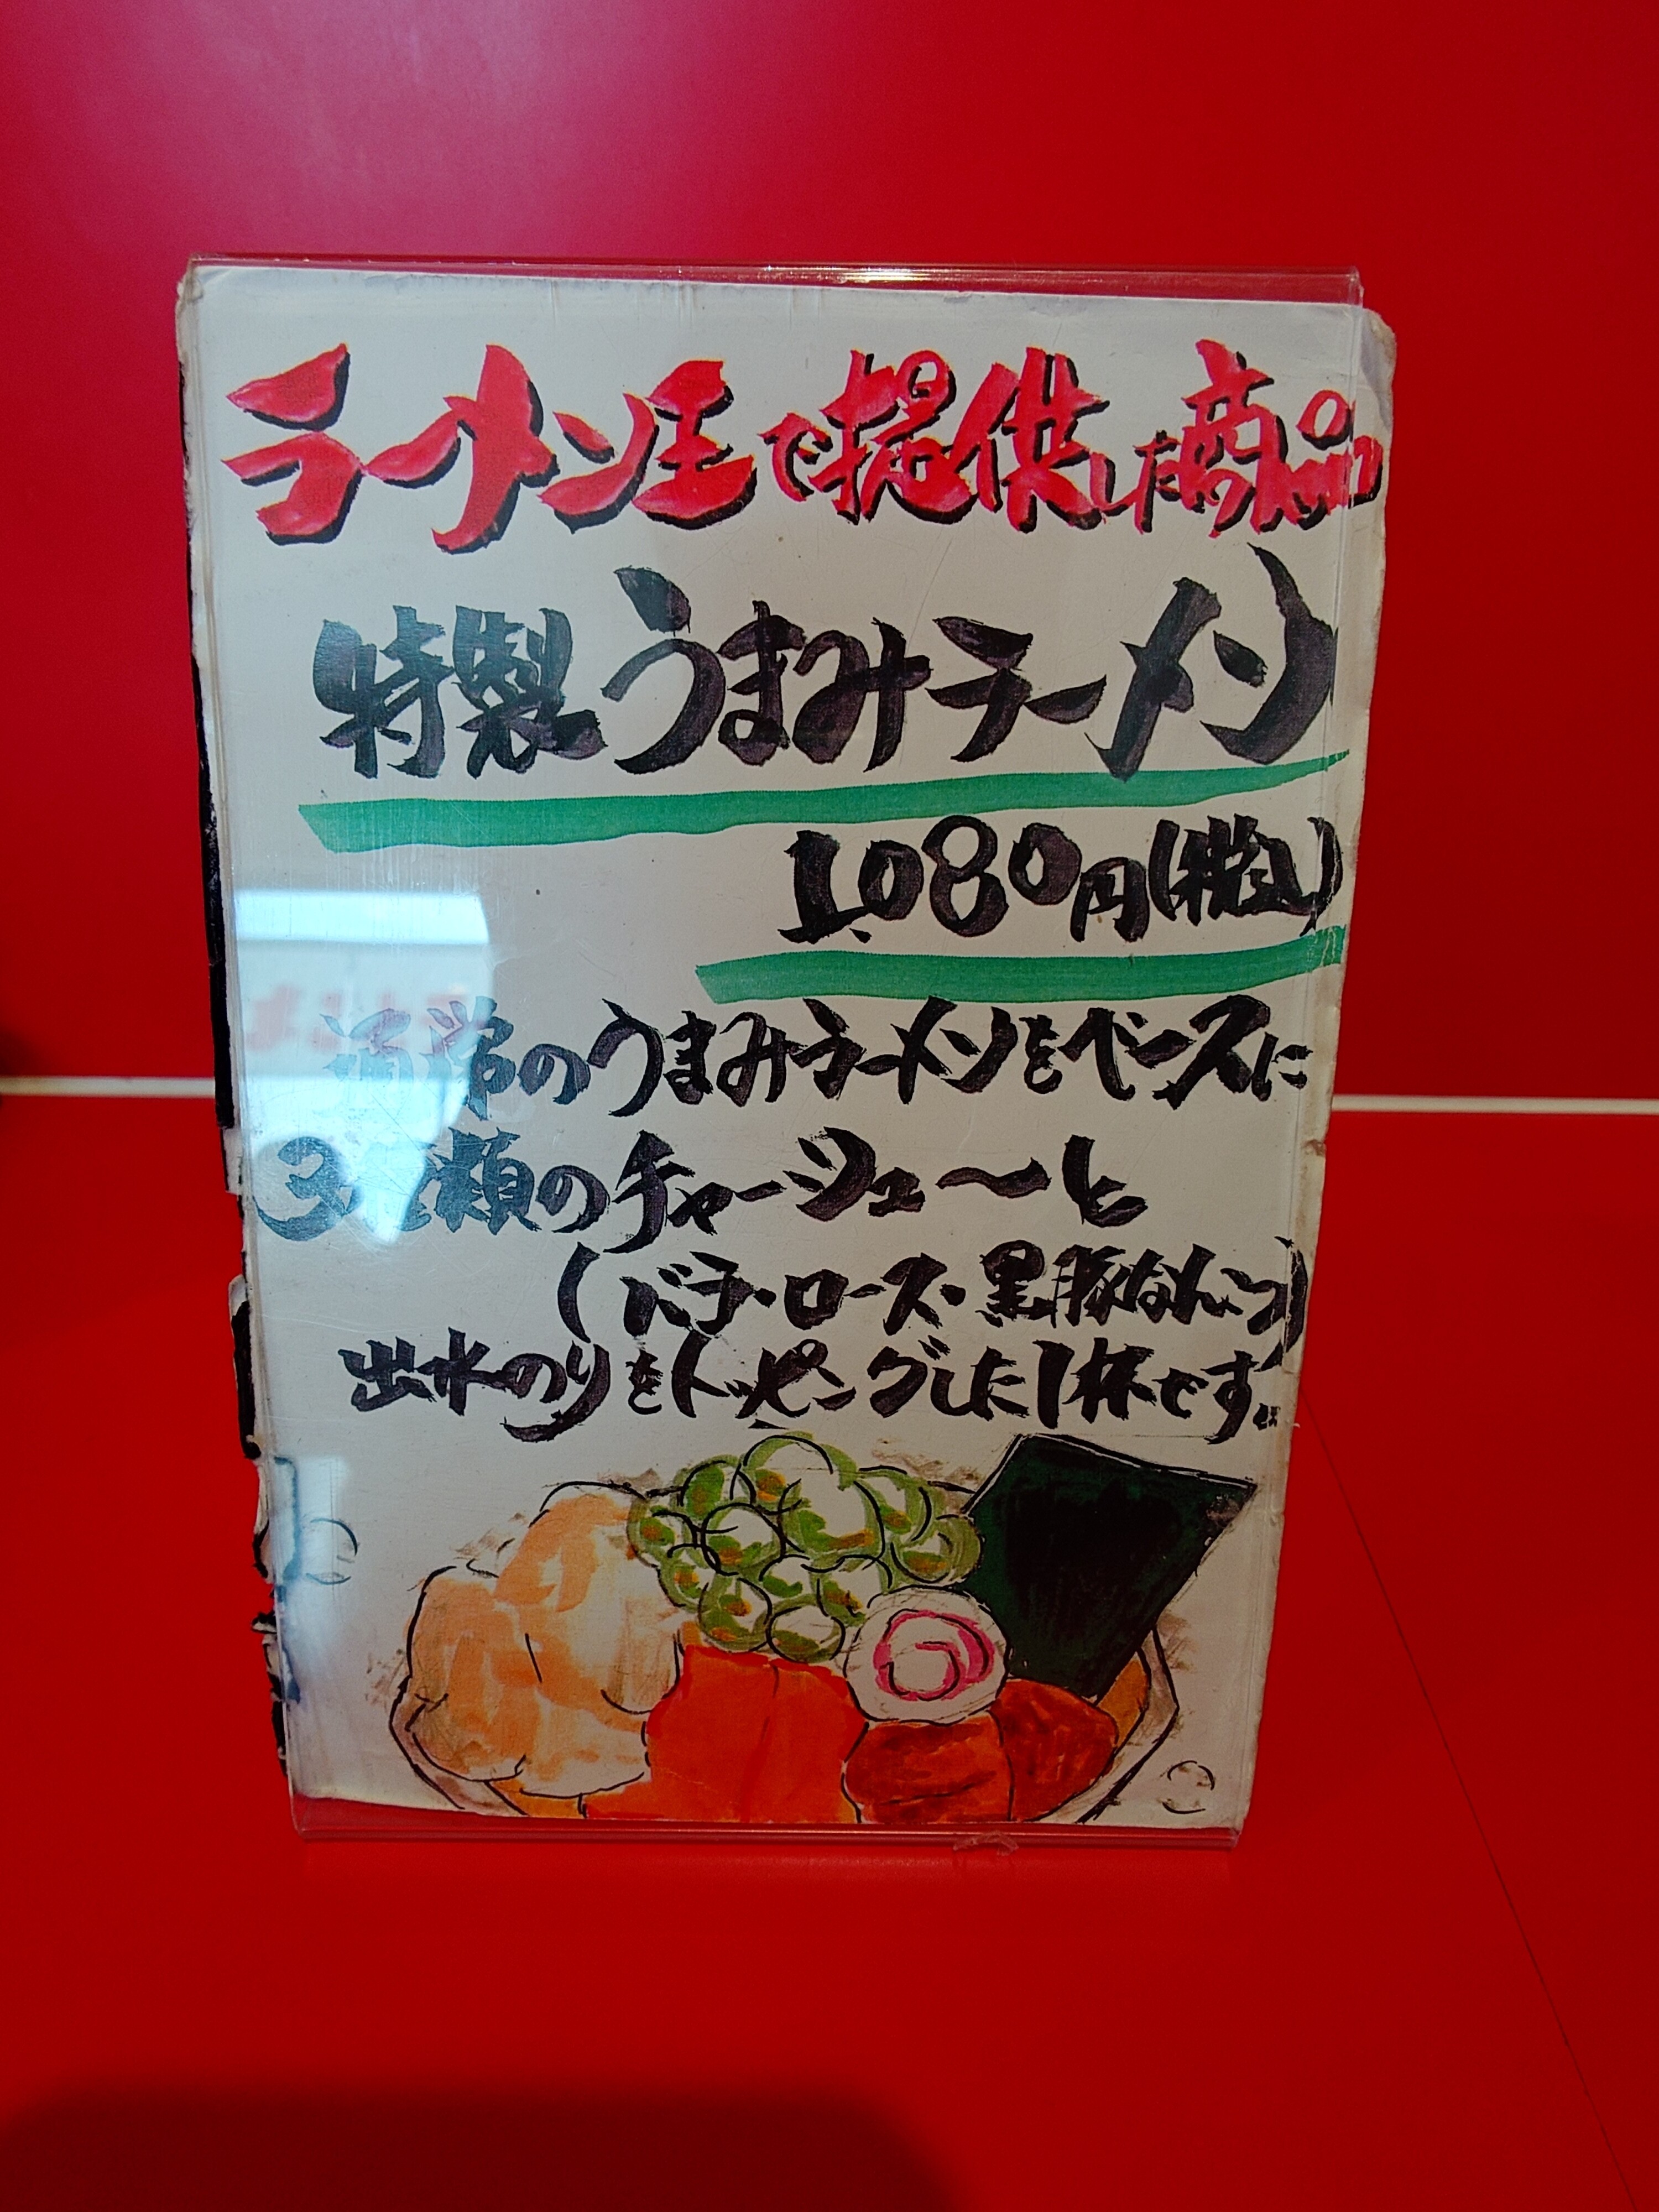 ラーメン王で提供した商品
特製うまみラーメン
1,080円(税込)
通常のうまみラーメンをベースに
3種類のチャーシュ〜と
(バラ・ロース・黒豚なんこつ)
出水のりをトッピングした1杯です。